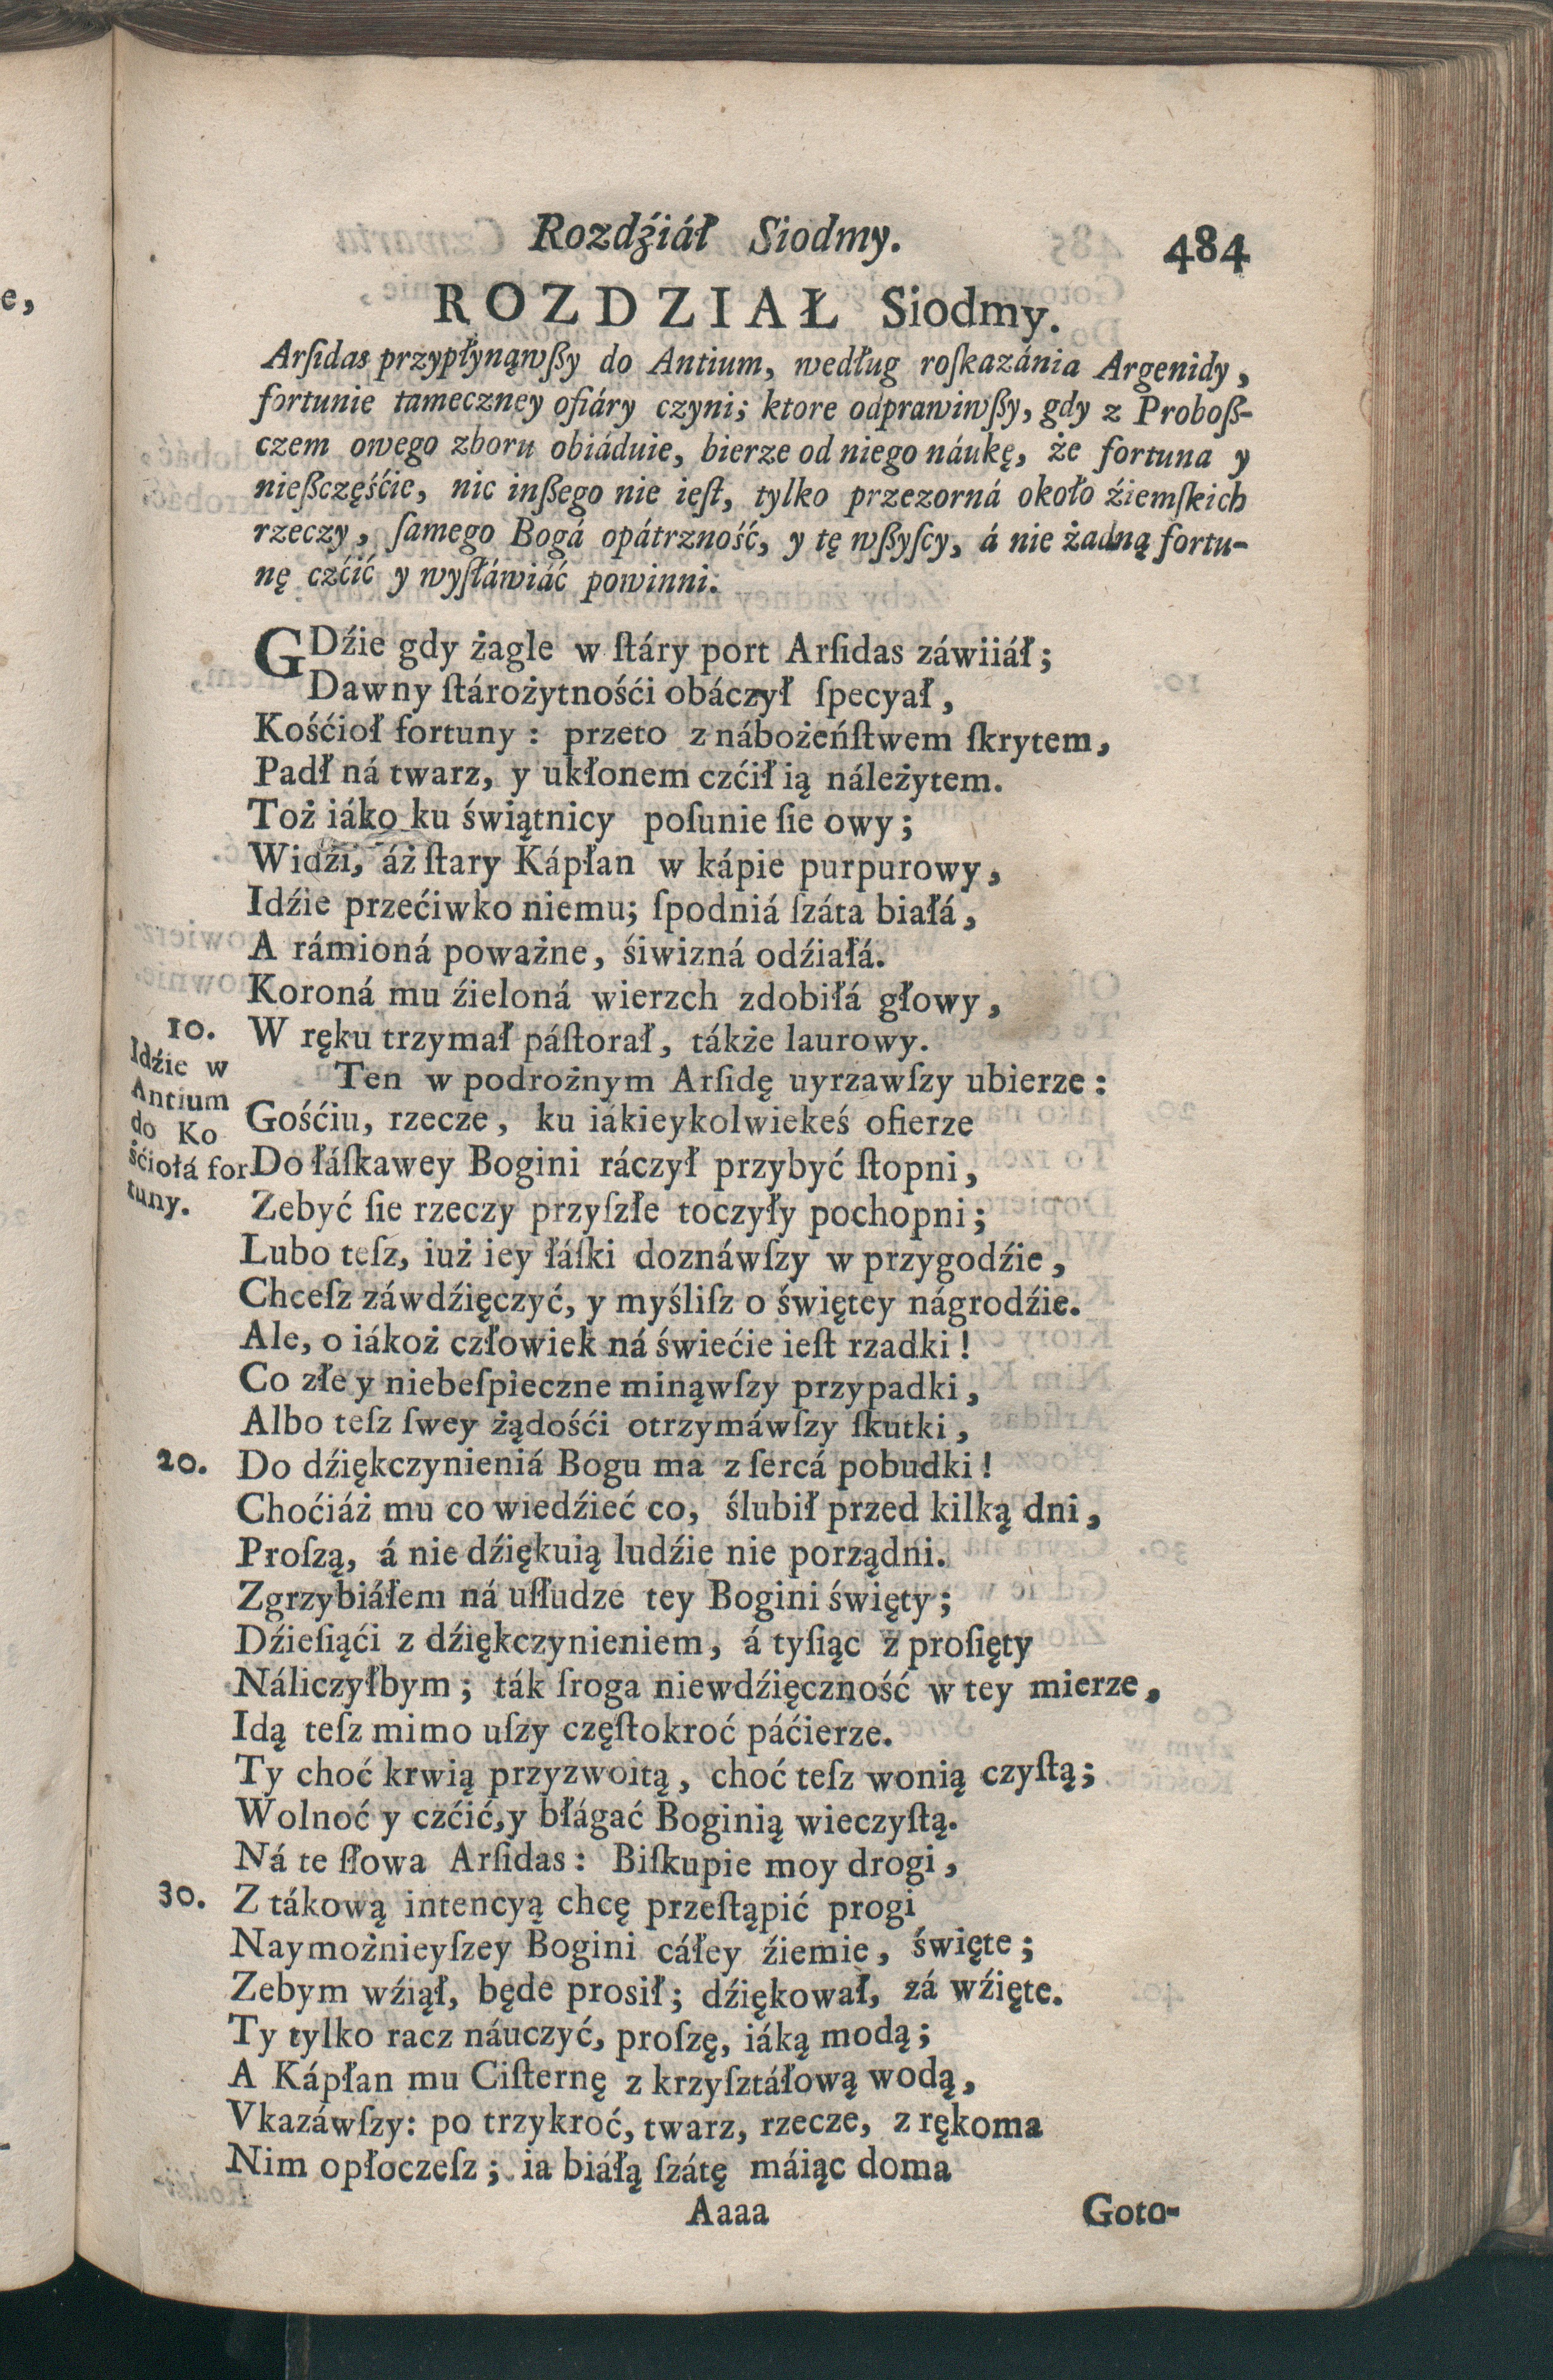 Rozdźiáł Siodmy. 484
ROZDZIAŁ Siodmy.
Arſidas przypłynąwßy do Antium, według roſkazánia Argenidy,
fortunie tameczney ofiáry czyni; ktore odprawiwßy, gdy z Proboß-
czem owego zboru obiáduie, bierze od niego náukę, że fortuna y
nießczęśćie, nic inßego nie ieſt, tylko przezorná około źiemſkich
rzeczy, ſamego Bogá opátrzność, y tę wßyſcy, á nie żadną fortu-
nę czćić y wyſłáwiáć powinni.
GDźie gdy żagle w ſtáry port Arſidas záwiiáł;
Dawny ſtárożytnośći obáczył ſpecyał,
Kośćioł fortuny: przeto z nábożeńſtwem ſkrytem,
Padł ná twarz, y ukłonem czćił ią náleżytem.
Toż iáko ku świątnicy poſunie ſie owy;
Widźi, áż ſtary Kápłan w kápie purpurowy,
Idźie przećiwko niemu; ſpodniá ſzáta białá,
A rámioná poważne, śiwizná odźiałá.
Koroná mu źieloná wierzch zdobiłá głowy,
10. W ręku trzymał páſtorał, tákże laurowy.
Idźie w
Antium
do Ko
śćiołá for
tuny.
Ten w podrożnym Arſidę uyrzawſzy ubierze:
Gośćiu, rzecze, ku iákieykolwiekeś ofierze
Do łáſkawey Bogini ráczył przybyć ſtopni,
Zebyć ſie rzeczy przyſzłe toczyły pochopni;
Lubo teſz, iuż iey łáſki doznáwſzy w przygodźie,
Chceſz záwdźięczyć, y myśliſz o świętey nágrodźie.
Ale, o iákoż człowiek ná świećie ieſt rzadki!
Co złe y niebeſpieczne minąwſzy przypadki,
Albo teſz ſwey żądośći otrzymáwſzy ſkutki,
20. Do dźiękczynieniá Bogu ma z ſercá pobudki!
Choćiáż mu co wiedźieć co, ślubił przed kilką dni,
Proſzą, á nie dźiękuią ludźie nie porządni.
Zgrzybiáłem ná uſłudze tey Bogini święty;
Dźieſiąći z dźiękczynieniem, á tyſiąc z proſięty
Náliczyłbym; ták ſroga niewdźięczność w tey mierze,
Idą teſz mimo uſzy częſtokroć páćierze.
Ty choć krwią przyzwoitą, choć teſz wonią czyſtą;
Wolnoć y czćić, y błágać Boginią wieczyſtą.
Ná te ſłowa Arſidas: Biſkupie moy drogi,
30. Z tákową intencyą chcę przeſtąpić progi
Naymożnieyſzey Bogini cáłey źiemie, święte;
Zebym wźiął, będe prosił; dźiękował, zá wźięte.
Ty tylko racz náuczyć, proſzę, iáką modą;
A Kápłan mu Ciſternę z krzyſztáłową wodą,
Vkazáwſzy: po trzykroć, twarz, rzecze, z rękoma
Nim opłoczeſz; ia biáłą ſzátę máiąc doma
Aaaa Goto-